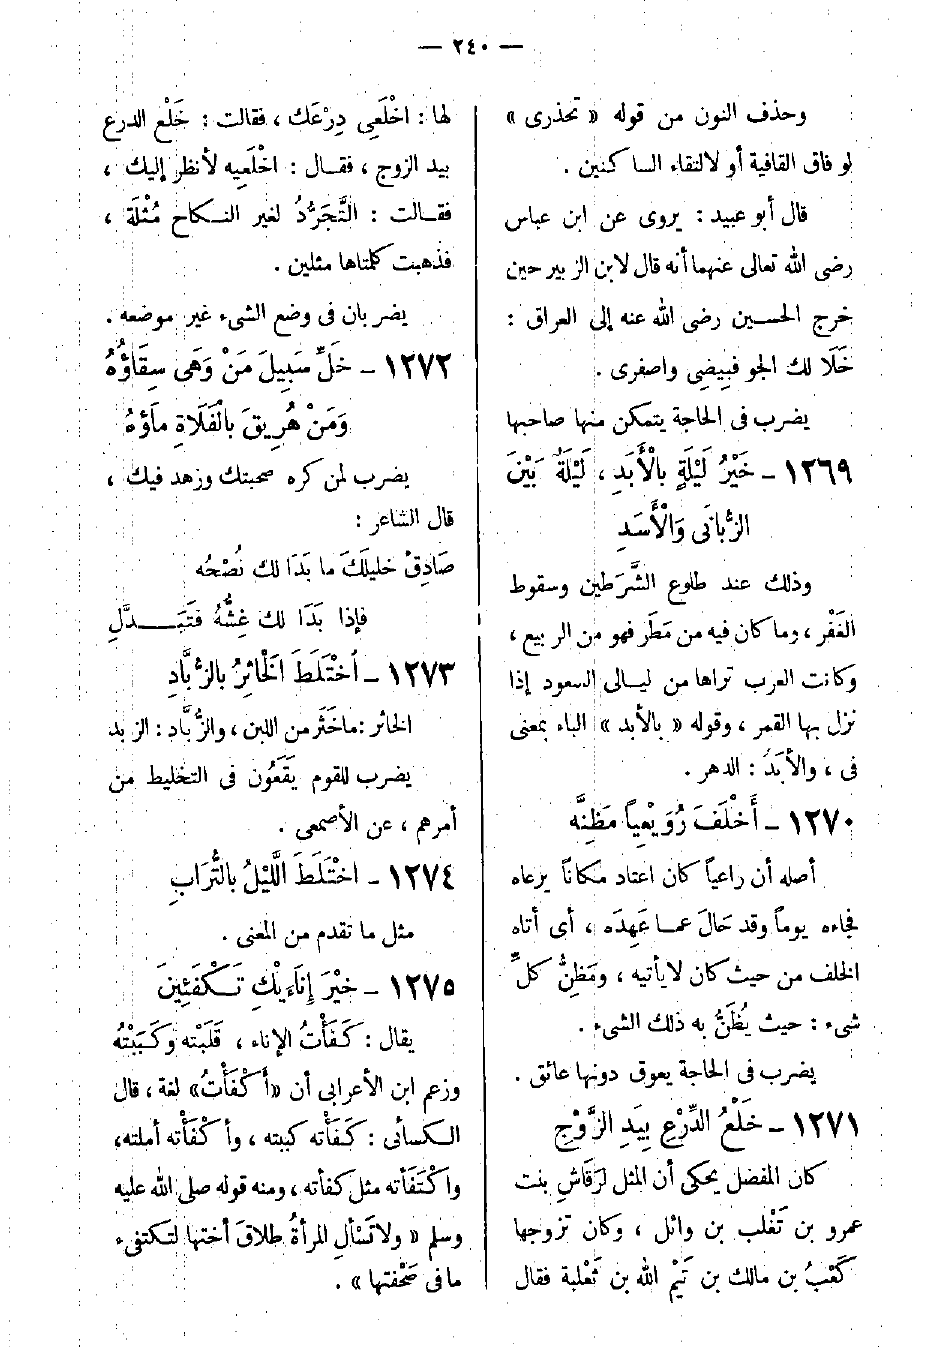 — ٢٤٠ —
وحذف النون من قوله « تحذرى »
لو فاق القافية أو لالتقاء الساكنين .
قال أبو عبيد : يروى عن ابن عباس
رضى الله تعالى عنهما أنه قال لابن الزبير حين
خرج الحسين رضى الله عنه إلى العراق :
خَلَا لك الجو فبِيضِى واصفرى .
يضرب فى الحاجة يتمكن منها صاحبها
١٢٦٩ – خَيْرُ لَيْلَةٍ بِالْأَبَدِ ، لَيْلَةُ بَيْنَ
الزُّبَانَى وَالْأَسَدِ
وذلك عند طلوع الشَّرَطين وسقوط
الغَفْر ، وما كان فيه من مَطَر فهو من الربيع ،
وكانت العرب تراها من ليالى السعود إذا
نزل بها القمر ، وقوله « بالأبد » الباء بمعنى
فى ، والأبَدُ : الدهر .
١٢٧٠ – أَخْلَفَ رُوَيْعِياً مَظِنَّه
أصله أن راعياً كان اعتاد مكاناً يرعاه
فجاءه يوماً وقد حَالَ عما عَهِدَه ، أى أتاه
الخلف من حيث كان لا يأتيه ، ومَظِنُّ كلِّ
شىء : حيث يُظَنُّ به ذلك الشىء .
يضرب فى الحاجة يعوق دونها عائق .
١٢٧١ – خَلْعُ الدِّرْعِ بِيَدِ الزَّوْجِ
كان المفضل يحكى أن المثل لرَقَاشِ بنت
عمرو بن تَغْلب بن وائل ، وكان تزوجها
كَعْبُ بن مالك بن تَيْم الله بن ثَعْلبة فقال
لها : اخْلَعِى دِرْعَك ، فقالت : خَلْع الدرع
بيد الزوج ، فقال : اخْلَعِيه لأنظر إليك ،
فقالت : التَّجَرُّدُ لغير النكاح مُثْلَة ،
فذهبت كلمتاها مثلين .
يضربان فى وضع الشىء غير موضعه .
١٢٧٢ – خَلِّ سَبِيلَ مَنْ وَهَى سِقَاؤُهُ
وَمَنْ هُرِيقَ بِالْفَلَاةِ مَاؤهُ
يضرب لمن كره صحبتك وزهد فيك ،
قال الشاعر :
صَادِقْ خليلَكَ ما بَدَا لك نُصْحُه
فإذا بَدَا لك غِشُّهُ فَتَبَدَّلِ
١٢٧٣ – اُخْتَلَطَ الْخَائِرُ بالزُّبَّادِ
الخائر : ما خَثَر من اللبن ، والزُّبَّاد : الزبد
يضرب للقوم يَقَعُون فى التخليط من
أمرهم ، عن الأصمعى .
١٢٧٤ – اخْتَلَطَ اللَّيْلُ بالتُّرَابِ
مثل ما تقدم من المعنى .
١٢٧٥ – خيْرَ إِنَاءَيْكِ تَكْفَئِينَ
يقال : كَفَأْتُ الإناء ، قَلَبْته وكَبَبْتُه
وزعم ابن الأعرابى أن « أَكْفَأْتُ » لغة ، قال
الكسائى : كَفَأْته كببته ، وأكْفَأْته أملته ،
واكْتَفَأته مثل كفأته ، ومنه قوله صلى الله عليه
وسلم « ولا تَسْألِ المرأةُ طلاقَ أختها لتكتفىء
ما فى صَحْفتها » .